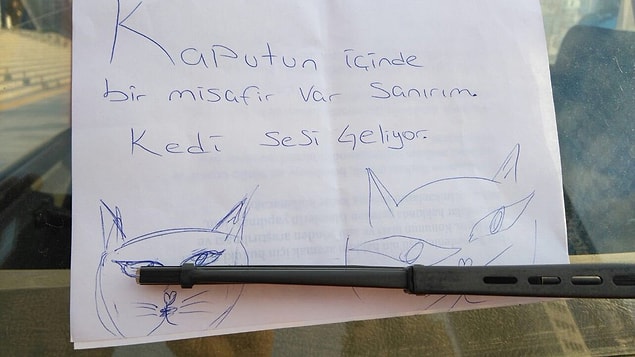 Kaputun içinde
bir misafir var sanırım.
Kedi sesi geliyor.